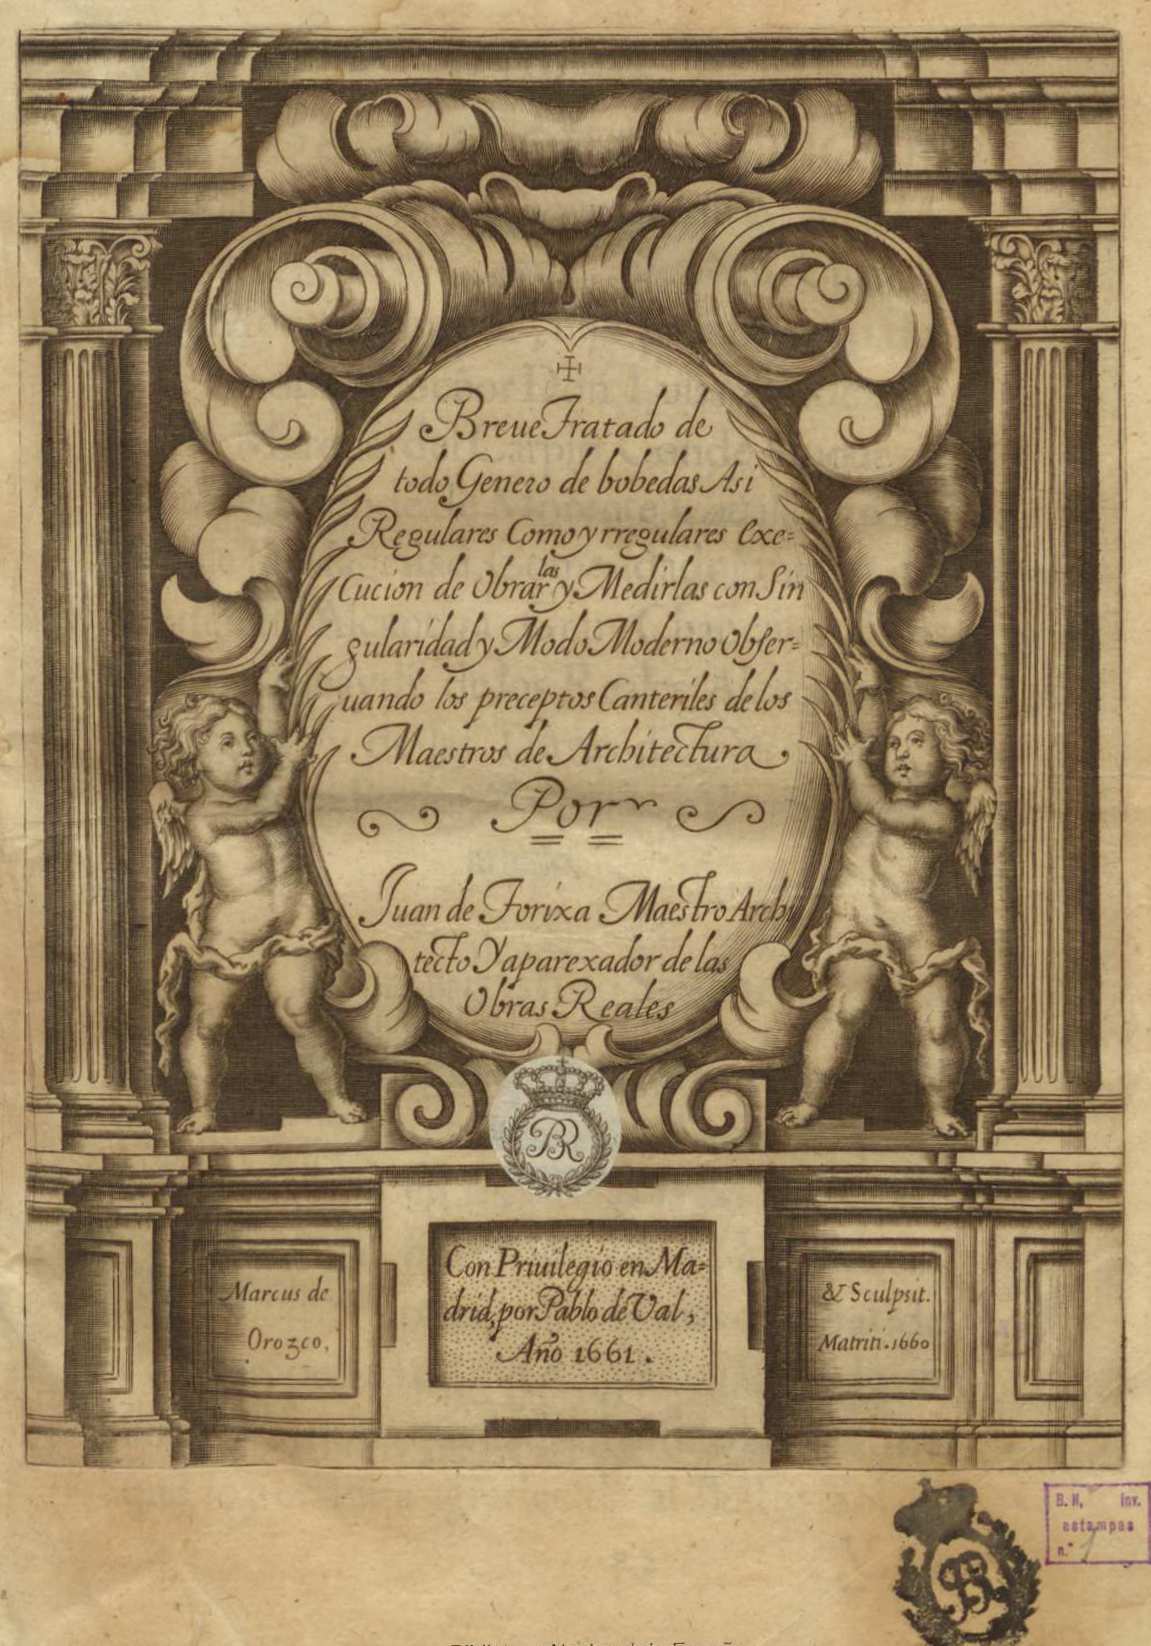 Breue Tratado de
todo Genero de bobedas Asi
Regulares Como yrregulares Exe=
Cucion de Obrarlas y Medirlas con Sin
gularidad y Modo Moderno Obser=
uando los preceptos Canteriles de los
Maestros de Architectura
Por
Juan de Torixa Maestro Archi
tecto Yaparexador de las
Obras Reales
BR
Con Priuilegio en Ma=
drid, por Pablo de Val,
Año 1661.
Marcus de
Orozco,
& Sculpsit.
Matriti. 1660
BR
B. N. inv.
estampas
n.° 1
Biblioteca Nacional de España